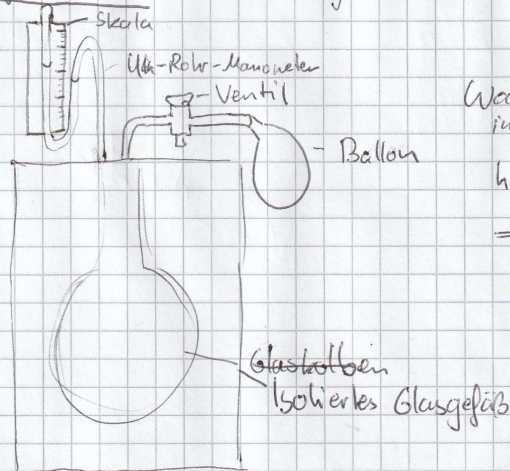 Skala
Uhr-Rohr-Manometer
Ventil
Ballon
Glaskolben
Isoliertes Glasgefäß
h